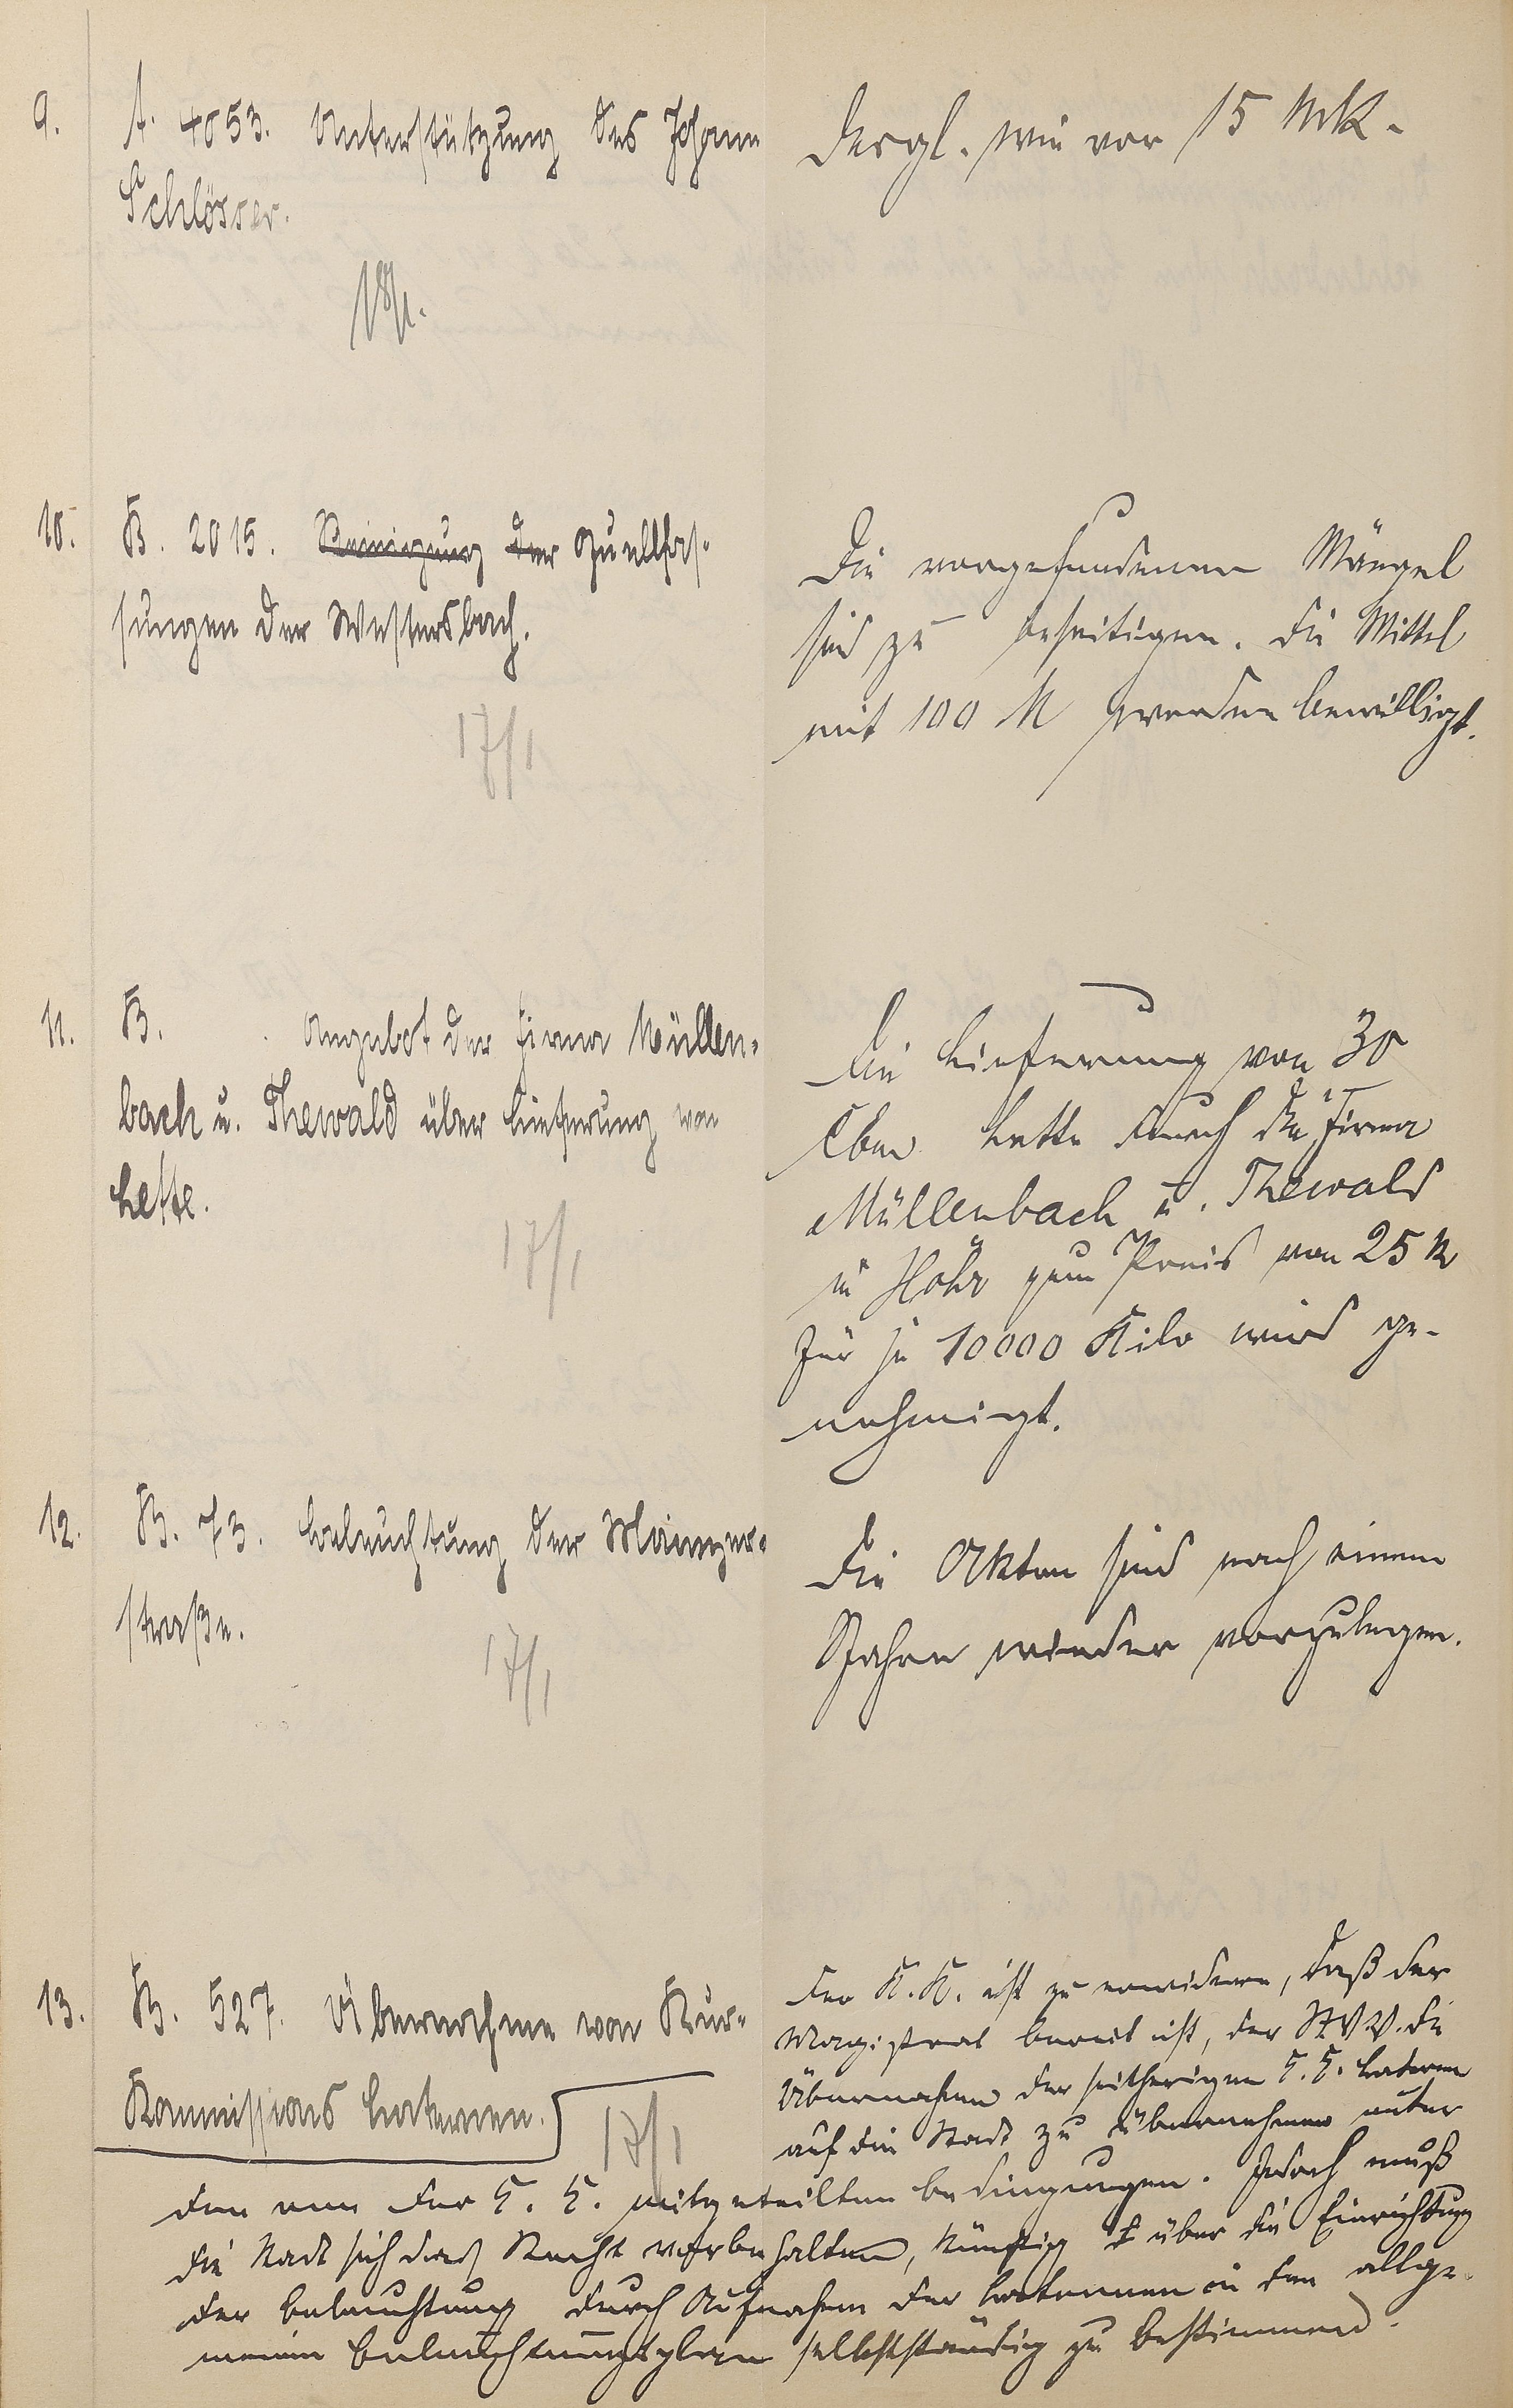 9.
A. 4053. Unterstützung des Johann
Schlösser.
18/1.
Dergl. wie vor 15 Mk.
10.
B. 2015. Reinigung der Quellfas-
sungen der Westersbach.
17/1
Die vorgefundenen Mängel
sind zu beseitigen. Die Mittel
mit 100 M werden bewilligt.
11.
B. . Angebot der Firma Müllen-
bach u. Thewald über Lieferung von
Lette.
17/1
Die Lieferung von 30
Cbm Lette durch die Firma
Müllenbach u. Thewald
in Höhr zum Preis von 25 M
für je 10000 Kilo wird ge-
nehmigt.
12.
B. 73. Beleuchtung der Mainzer-
straße.
17/1
Die Akten sind nach einem
Jahre wieder vorzulegen.
13.
B. 527. Übernahme von Kur-
Kommissions Laternen.
17/1
Der K.K. ist zu erwidern, daß der
Magistrat bereit ist, der StVV. die
Übernahme der seitherigen K.K. Laternen
auf die Stadt zu übernehmen unter
den von der K.K. mitgeteilten Bedingungen. Jedoch muß
die Stadt sich das Recht vorbehalten, künftig über die Einrichtung
der Beleuchtung durch Aufnahme der Laternen in den allge-
meinen Beleuchtungsplan selbstständig zu bestimmen.